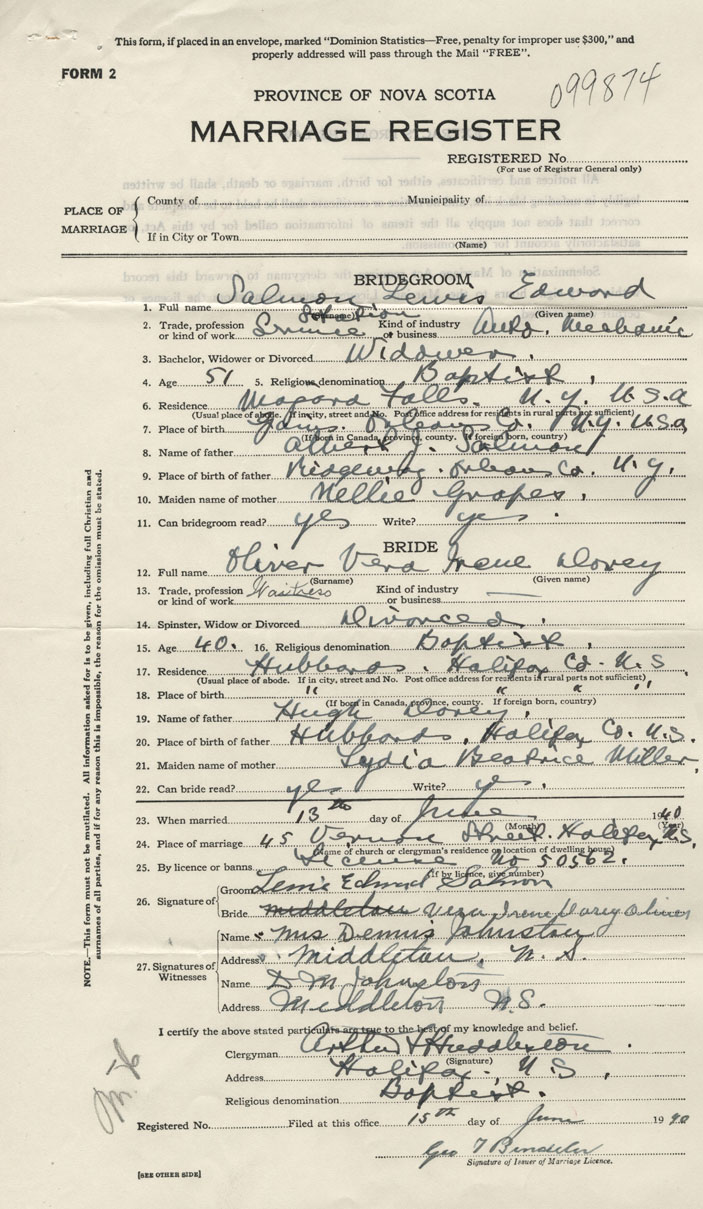 This form, if placed in an envelope, marked "Dominion Statistics—Free, penalty for improper use $300," and
properly addressed will pass through the Mail "FREE".
FORM 2
099874
PROVINCE OF NOVA SCOTIA
MARRIAGE REGISTER
REGISTERED No.
(For use of Registrar General only)
PLACE OF MARRIAGE
County of Municipality of
If in City or Town
(Name)
BRIDEGROOM
1. Full name Salmon Lewis Edward
(Surname) (Given name)
2. Trade, profession or kind of work Service Station Kind of industry or business Auto. Mechanic
3. Bachelor, Widower or Divorced Widower.
4. Age 51 5. Religious denomination Baptist,
6. Residence Niagara Falls. N.Y. U.S.A
(Usual place of above. If in city, street and No. Post office address for residents in rural parts not sufficient)
7. Place of birth Orleans Co. N.Y. U.S.A,
(If born in Canada, province, county. If foreign born, country)
8. Name of father Albert J. Salmon
9. Place of birth of father Ridgeway. Orleans Co. N.Y.
10. Maiden name of mother Nellie Grapes.
11. Can bridegroom read? yes Write? yes.
BRIDE
12. Full name Oliver Vera Irene Dorey
(Surname) (Given name)
13. Trade, profession or kind of work Waitress Kind of industry or business —
14. Spinster, Widow or Divorced Divorced,
15. Age 40. 16. Religious denomination Baptist,
17. Residence Hubbards. Halifax Co. N.S
(Usual place of abode. If in city, street and No. Post office address for residents in rural parts not sufficient)
18. Place of birth " " " "
(If born in Canada, province, county. If foreign born, country)
19. Name of father Hugh Dorey,
20. Place of birth of father Hubbards, Halifax Co. N.S.
21. Maiden name of mother Lydia Beatrice Miller,
22. Can bride read? yes Write? yes.
23. When married 13th day of June 1940
(Month) (Year)
24. Place of marriage 45 Vernon Street. Halifax, N.S.
(Name of church or clergyman's residence or location of dwelling house)
25. By licence or banns License No 50562.
(If by licence, give number)
26. Signature of
Groom Edward Salmon
Bride Middleton Vera Irene Dorey Oliver
27. Signatures of Witnesses
Name Mrs Dennis Johnston
Address Middleton, N.S.
Name D M Johnston
Address Middleton N.S.
I certify the above stated particulars are true to the best of my knowledge and belief.
Clergyman Arthur Huddleston.
(Signature)
Address Halifax. N.S,
Religious denomination Baptist.
Registered No. Filed at this office 15th day of June 1940
Geo
Signature of Issuer of Marriage Licence.
[SEE OTHER SIDE]
NOTE.—This form must not be mutilated. All information asked for is to be given, including full Christian and
surnames of all parties, and if for any reason this is impossible, the reason for the omission must be stated.